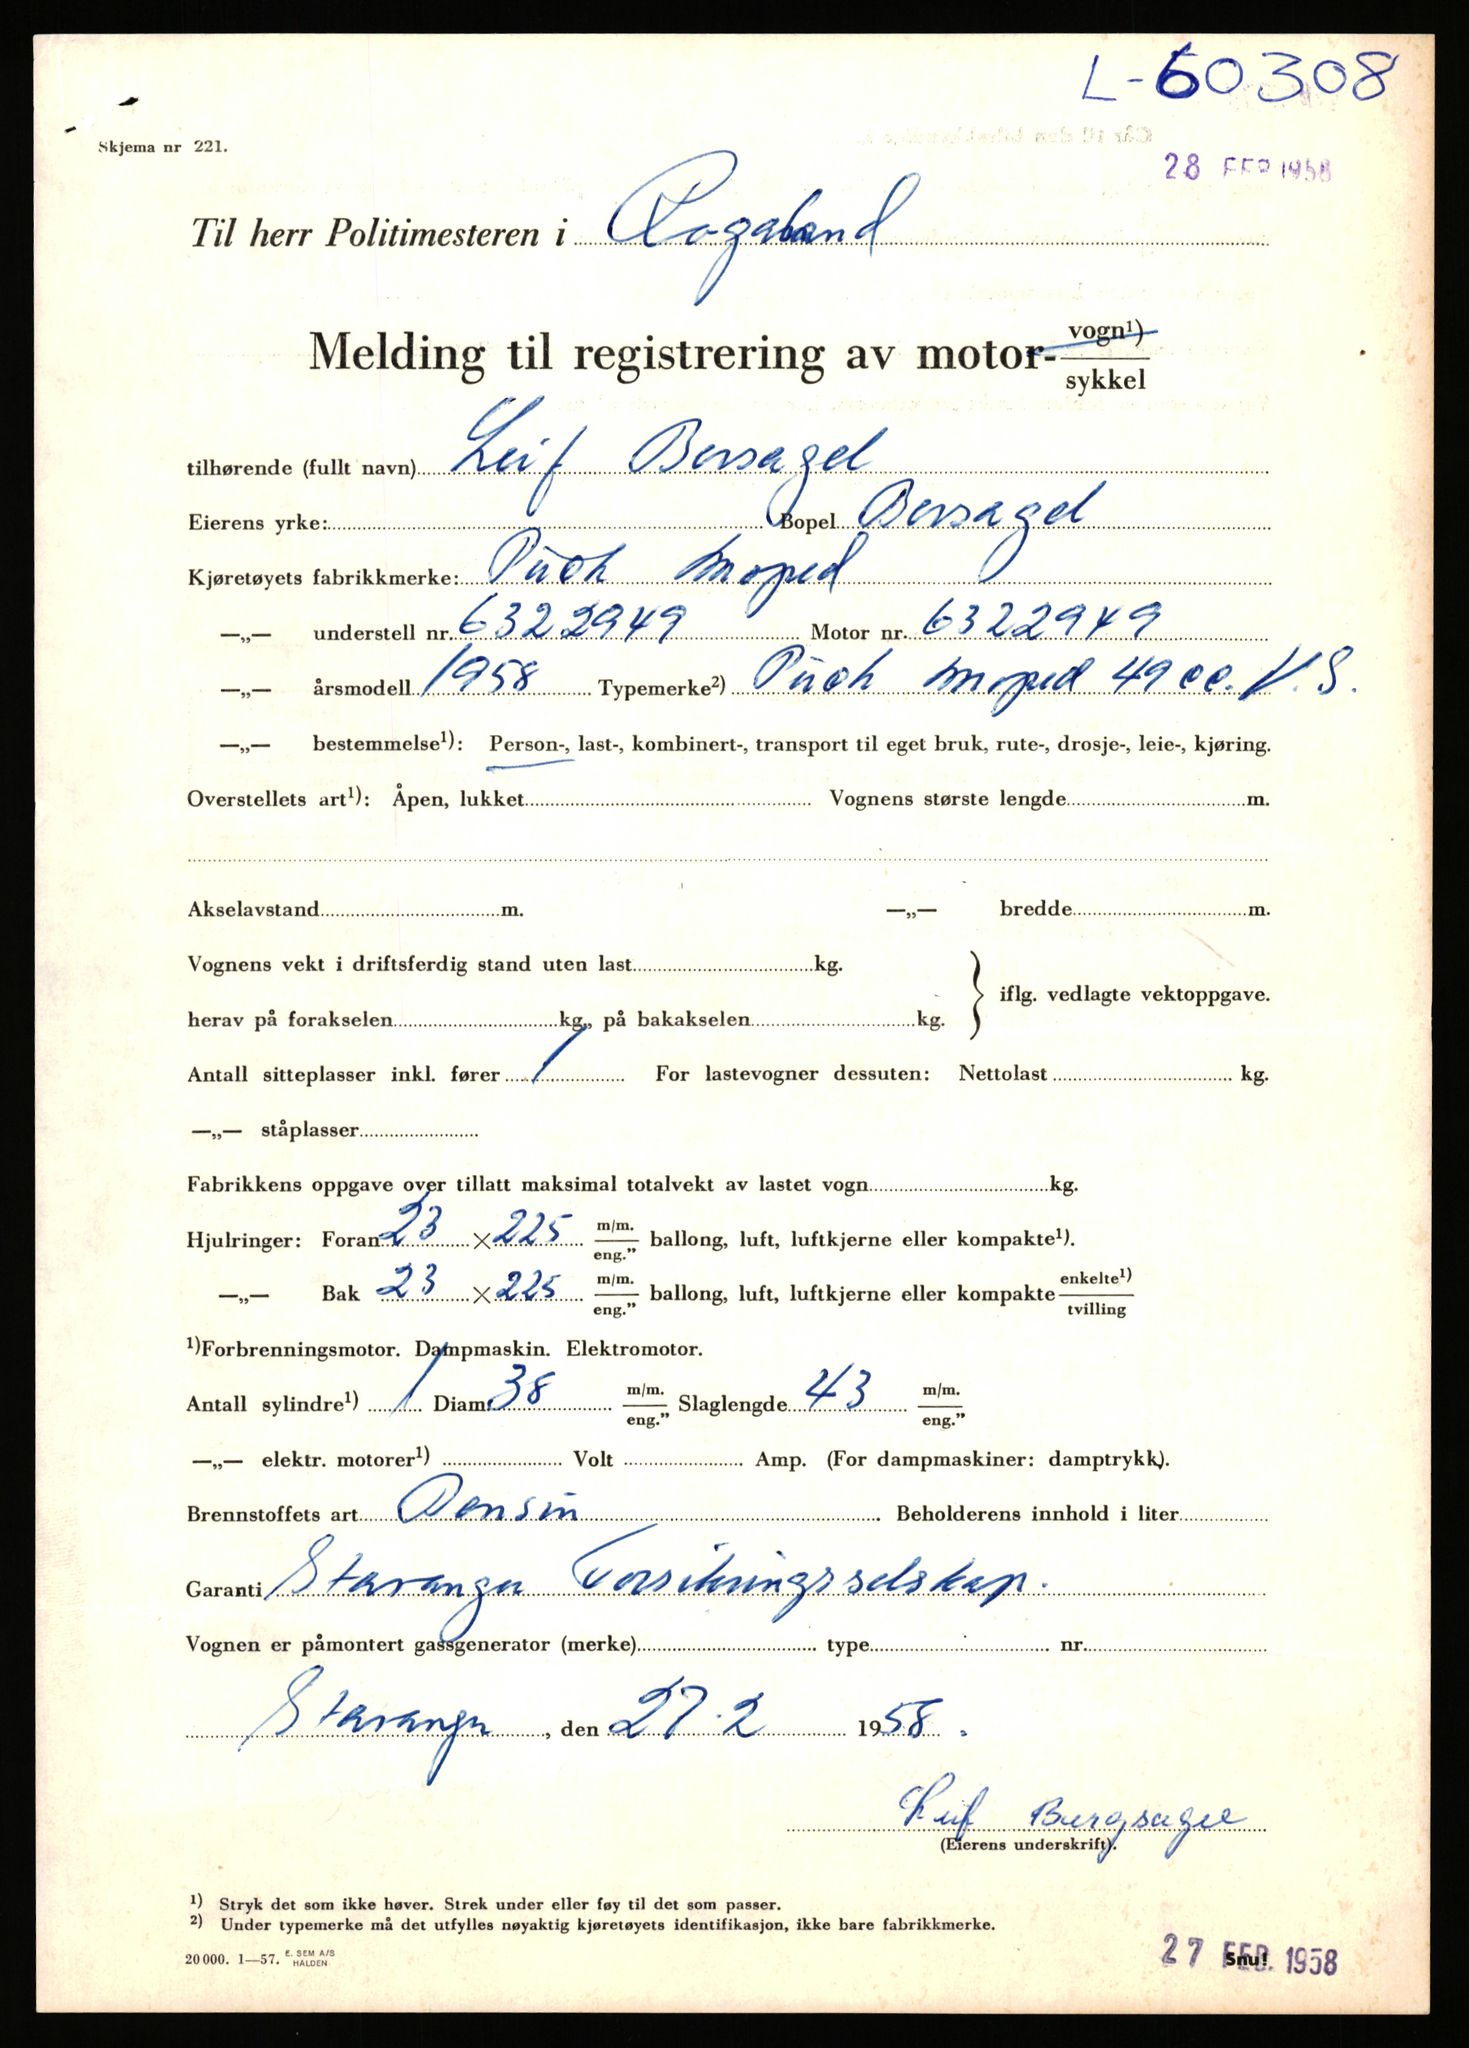 L-60308
Skjema nr 221.
28 FEB 1958
Til herr Politimesteren i Rogaland
Melding til registrering av motor- vogn¹) / sykkel
tilhørende (fullt navn) Leif Bersagel
Eierens yrke: Bopel Bersagel
Kjøretøyets fabrikkmerke: Puch moped
—„— understell nr. 6322949 Motor nr. 6322949
—„— årsmodell 1958 Typemerke²) Puch moped 49 cc. V.S.
—„— bestemmelse¹): Person-, last-, kombinert-, transport til eget bruk, rute-, drosje-, leie-, kjøring.
Overstellets art¹): Åpen, lukket Vognens største lengde m.
Akselavstand m. —„— bredde m.
Vognens vekt i driftsferdig stand uten last kg.
herav på forakselen kg., på bakakselen kg. } iflg. vedlagte vektoppgave.
Antall sitteplasser inkl. fører 1 For lastevogner dessuten: Nettolast kg.
—„— ståplasser
Fabrikkens oppgave over tillatt maksimal totalvekt av lastet vogn kg.
Hjulringer: Foran 23 × 225 m/m. / eng.” ballong, luft, luftkjerne eller kompakte¹).
—„— Bak 23 × 225 m/m. / eng.” ballong, luft, luftkjerne eller kompakte enkelte¹) / tvilling
¹)Forbrenningsmotor. Dampmaskin. Elektromotor.
Antall sylindre¹) 1 Diam. 38 m/m. / eng.” Slaglengde 43 m/m. / eng.”
—„— elektr. motorer¹) Volt Amp. (For dampmaskiner: damptrykk).
Brennstoffets art Bensin. Beholderens innhold i liter
Garanti Stavanger Forsikringsselskap.
Vognen er påmontert gassgenerator (merke) type nr.
Stavanger, den 27.2 1958.
Leif Bergsagel
(Eierens underskrift).
¹) Stryk det som ikke høver. Strek under eller føy til det som passer.
²) Under typemerke må det utfylles nøyaktig kjøretøyets identifikasjon, ikke bare fabrikkmerke.
20 000. 1—57. E. SEM A/S HALDEN
Snu!
27 FEB. 1958